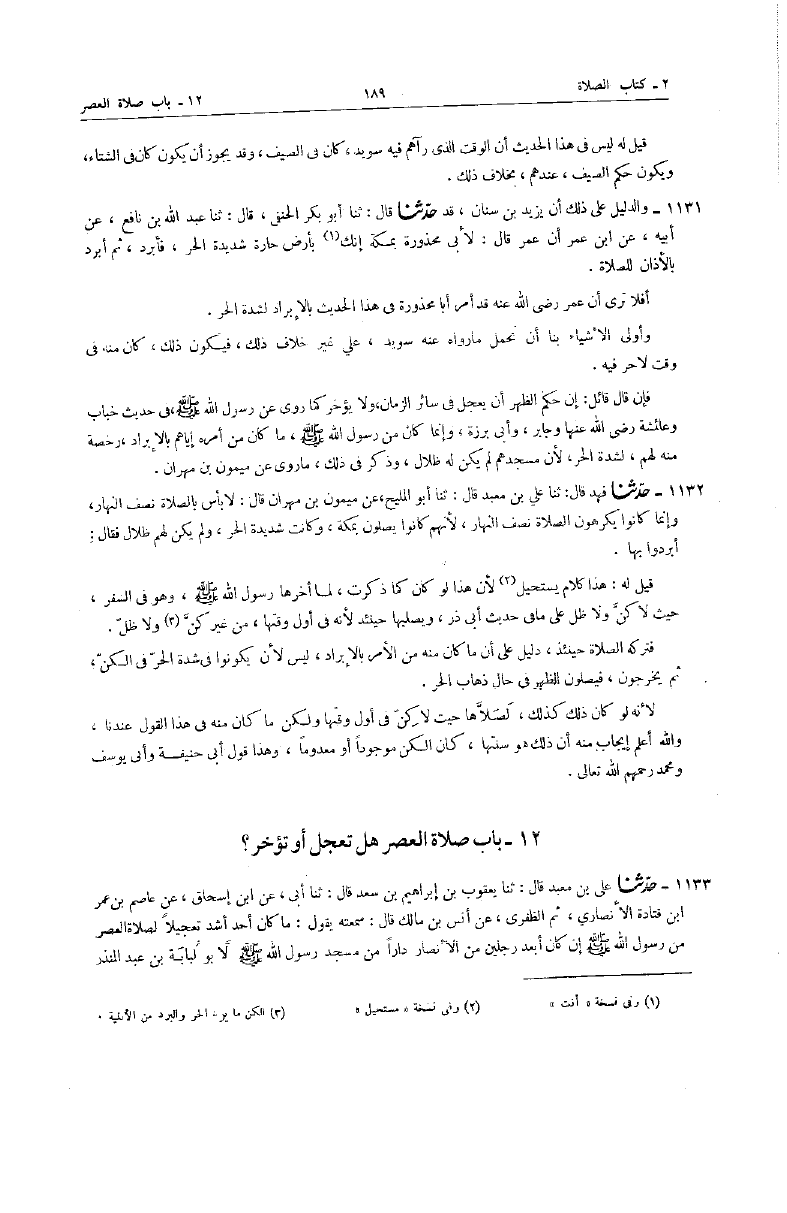 ٢ - كتاب الصلاة ١٨٩ ١٢ - باب صلاة العصر
قيل له ليس فى هذا الحديث أن الوقت الذى رآهم فيه سويد ، كان فى الصيف ، وقد يجوز أن يكون كان فى الشتاء،
ويكون حكم الصيف ، عندهم ، بخلاف ذلك .
١١٣١ - والدليل على ذلك أن يزيد بن سنان ، قد حدّثنا قال : ثنا أبو بكر الحنفى ، قال : ثنا عبد الله بن نافع ، عن
أبيه ، عن ابن عمر أن عمر قال : لأبى محذورة بمكة إنك(١) بأرض حارة شديدة الحر ، فأبرد ، ثم أبرد
بالأذان للصلاة .
أفلا ترى أن عمر رضى الله عنه قد أمر أبا محذورة فى هذا الحديث بالإبراد لشدة الحر .
وأولى الأشياء بنا أن نحمل مارواه عنه سويد ، علي غير خلاف ذلك ، فيكون ذلك ، كان منه فى
وقت لاحر فيه .
فإن قال قائل: إن حكم الظهر أن يعجل فى سائر الزمان،ولا يؤخر كما روى عن رسول الله ﷺ،فى حديث خباب
وعائشة رضى الله عنها وجابر ، وأبى برزة ، وإنما كان من رسول الله ﷺ ، ما كان من أمره إياهم بالإبراد ،رخصة
منه لهم ، لشدة الحر، لأن مسجدهم لم يكن له ظلال ، وذكر فى ذلك ، ماروى عن ميمون بن مهران .
١١٣٢ - حدّثنا فهد قال: ثنا علي بن معبد قال : ثنا أبو المليح،عن ميمون بن مهران قال : لابأس بالصلاة نصف النهار،
وإنما كانوا يكرهون الصلاة نصف النهار ، لأنهم كانوا يصلون بمكة ، وكانت شديدة الحر ، ولم يكن لهم ظلال فقال :
أبردوا بها .
قيل له : هذا كلام يستحيل(٢) لأن هذا لو كان كما ذكرت ، لما أخرها رسول الله ﷺ ، وهو فى السفر ،
حيث لاكنّ ولا ظل على مافى حديث أبى ذر ، ويصليها حينئذ لأنه فى أول وقتها ، من غير كنّ (٣) ولا ظلّ .
فتركه الصلاة حينئذ ، دليل على أن ما كان منه من الأمر بالإبراد ، ليس لأن يكونوا فى شدة الحرّ فى الكنّ،
ثم يخرجون ، فيصلون الظهر فى حال ذهاب الحر .
لأنه لو كان ذلك كذلك ، لَصَلاَّها حيث لاكِنّ فى أول وقتها ولكن ما كان منه فى هذا القول عندنا ،
والله أعلم إيجاب منه أن ذلك هو سنتها ، كان الكن موجوداً أو معدوماً ، وهذا قول أبى حنيفة وأبى يوسف
ومحمد رحمهم الله تعالى .
١٢ - باب صلاة العصر هل تعجل أو تؤخر ؟
١١٣٣ - حدّثنا على بن معبد قال : ثنا يعقوب بن إبراهيم بن سعد قال : ثنا أبى ، عن ابن إسحاق ، عن عاصم بن عمر
ابن قتادة الأنصاري ، ثم الظفرى ، عن أنس بن مالك قال : سمعته يقول : ما كان أحد أشد تعجيلاً لصلاة العصر
من رسول الله ﷺ إن كان أبعد رجلين من الأنصار داراً من مسجد رسول الله ﷺ لَأبو لُبابَة بن عبد المنذر
(١) وفى نسخة « أنت » (٢) وفى نسخة « مستحيل » (٣) الكن ما يرد الحر والبرد من الأبنية .